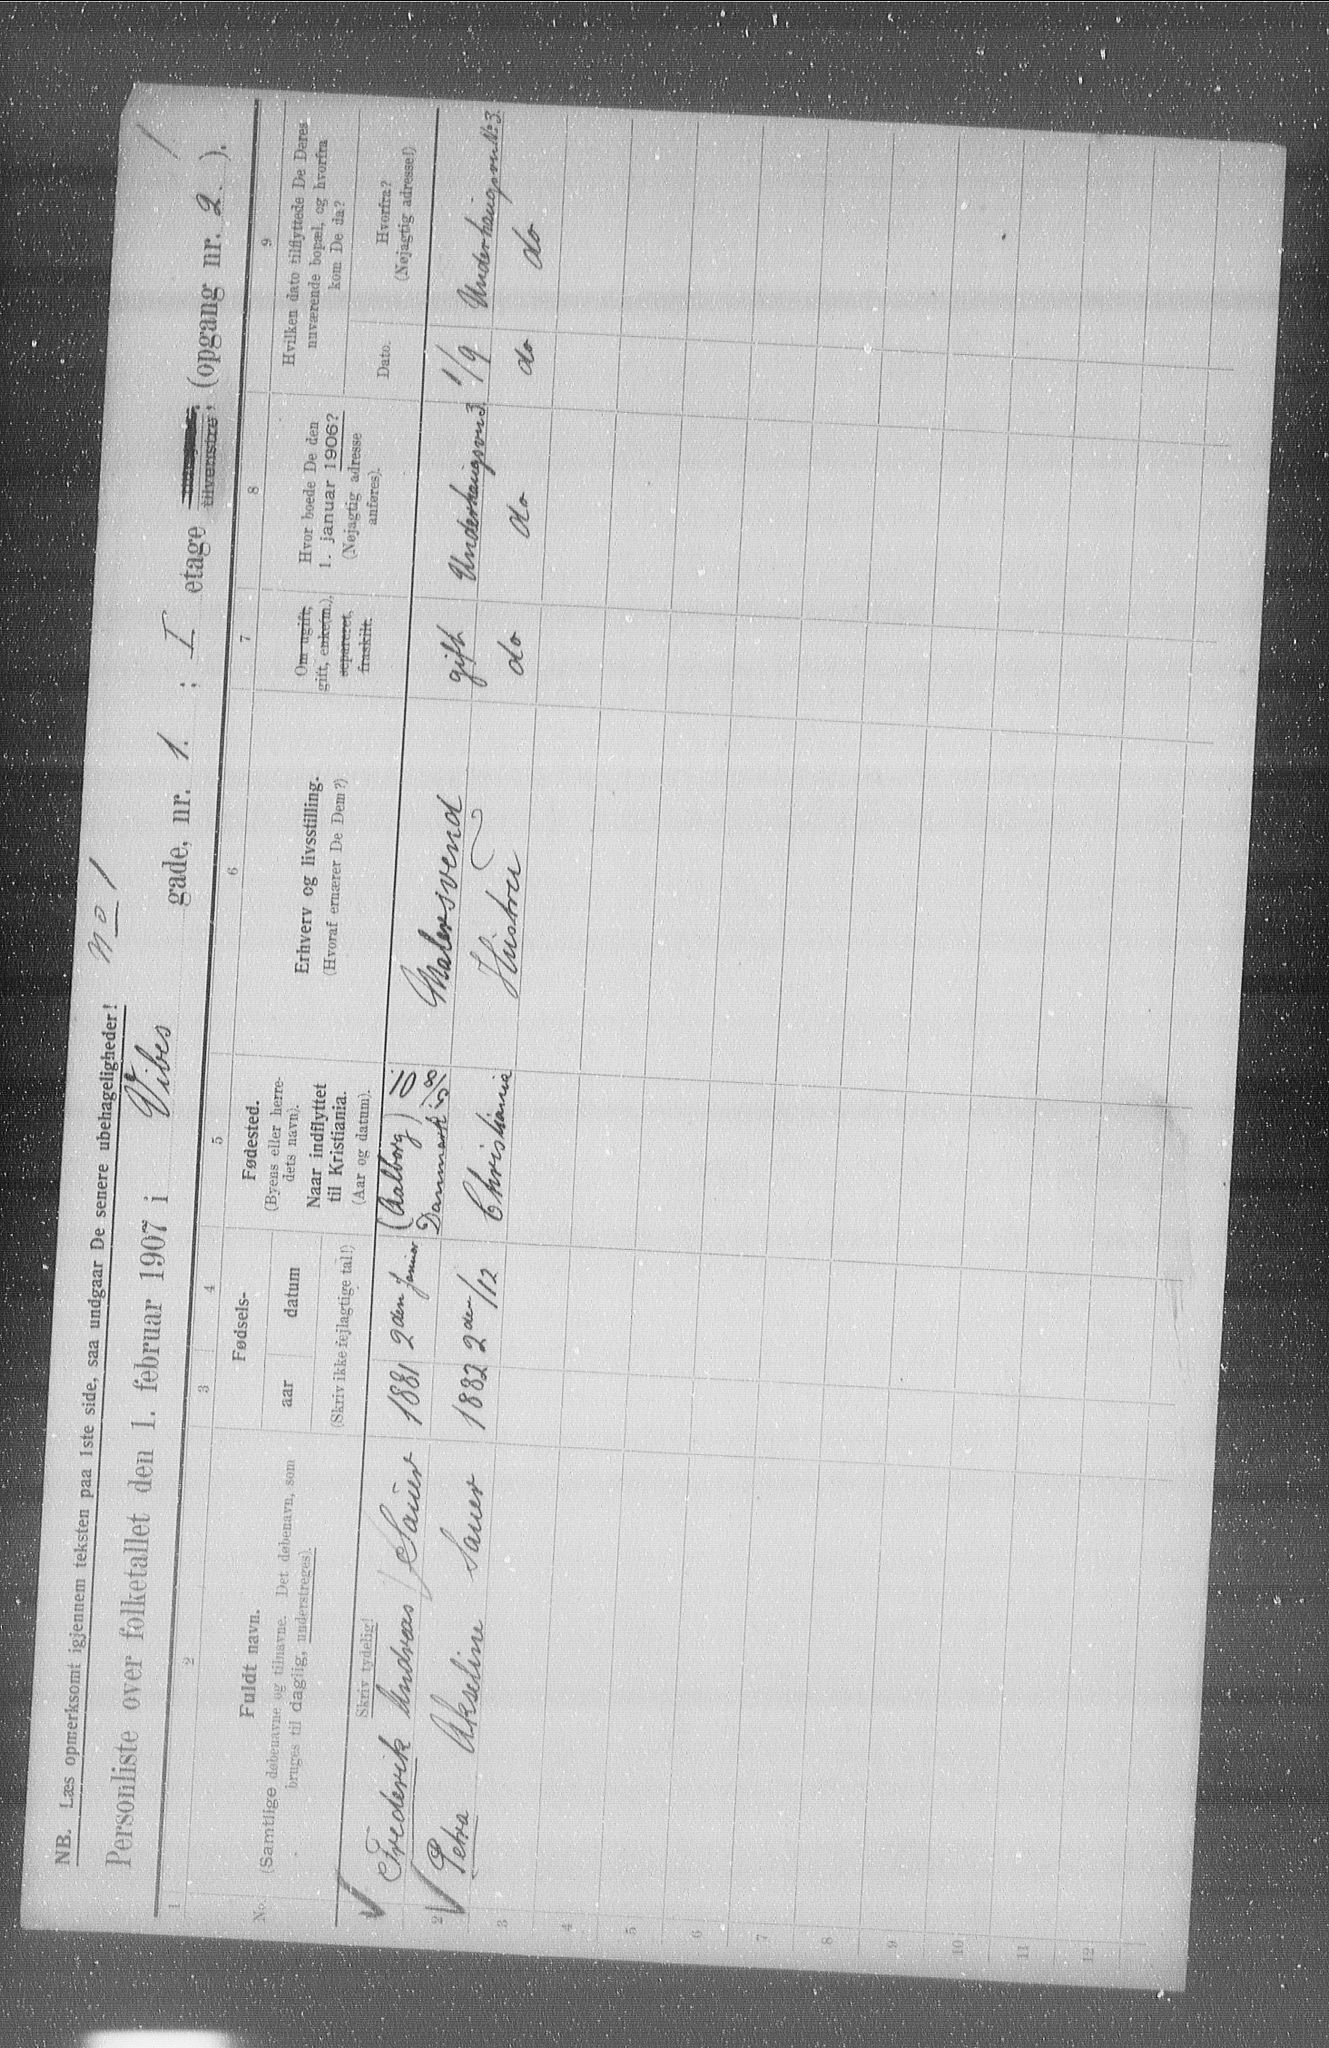 NB. Læs opmerksomt igjennem teksten paa 1ste side, saa undgaar De senere ubehageligheder! No 1
Personliste over folketallet den 1. februar 1907 i Vibes gade, nr. 1. ; I etage tilvenstre, (opgang nr. 2. ).
1 2 3 4 5 6 7 8 9
No.
Fuldt navn.
(Samtlige døbenavne og tilnavne. Det døbenavn, som
bruges til daglig, understreges).
Skriv tydelig!
Fødsels-
aar datum
(Skriv ikke fejlagtige tal!)
Fødested.
(Byens eller herre-
dets navn).
Naar indflyttet
til Kristiania.
(Aar og datum).
Erhverv og livsstilling.
(Hvoraf ernærer De Dem?)
Om ugift,
gift, enke(m.),
separeret,
fraskilt.
Hvor boede De den
1. januar 1906?
(Nøjagtig adresse
anføres).
Hvilken dato tilflyttede De Deres
nuværende bopæl, og hvorfra
kom De da?
Dato.
Hvorfra?
(Nøjagtig adresse!)
Frederik Andreas Sauer 1881 2den januar (Aalborg) Danmark Malersvend gift Underhaugsvn 3 1/9 Underhaugsvn No 3.
2 Petra Akseline Sauer 1882 2den/12 Christiania Hustru do do do do
3
4
5
6
7
8
9
10
11
12